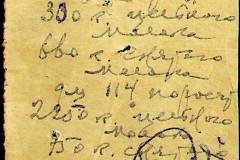 330 к. цельного
молока
660 к. снятого
молока
для 114 поросят
2250 к. цельного
молока
750 к. снятого